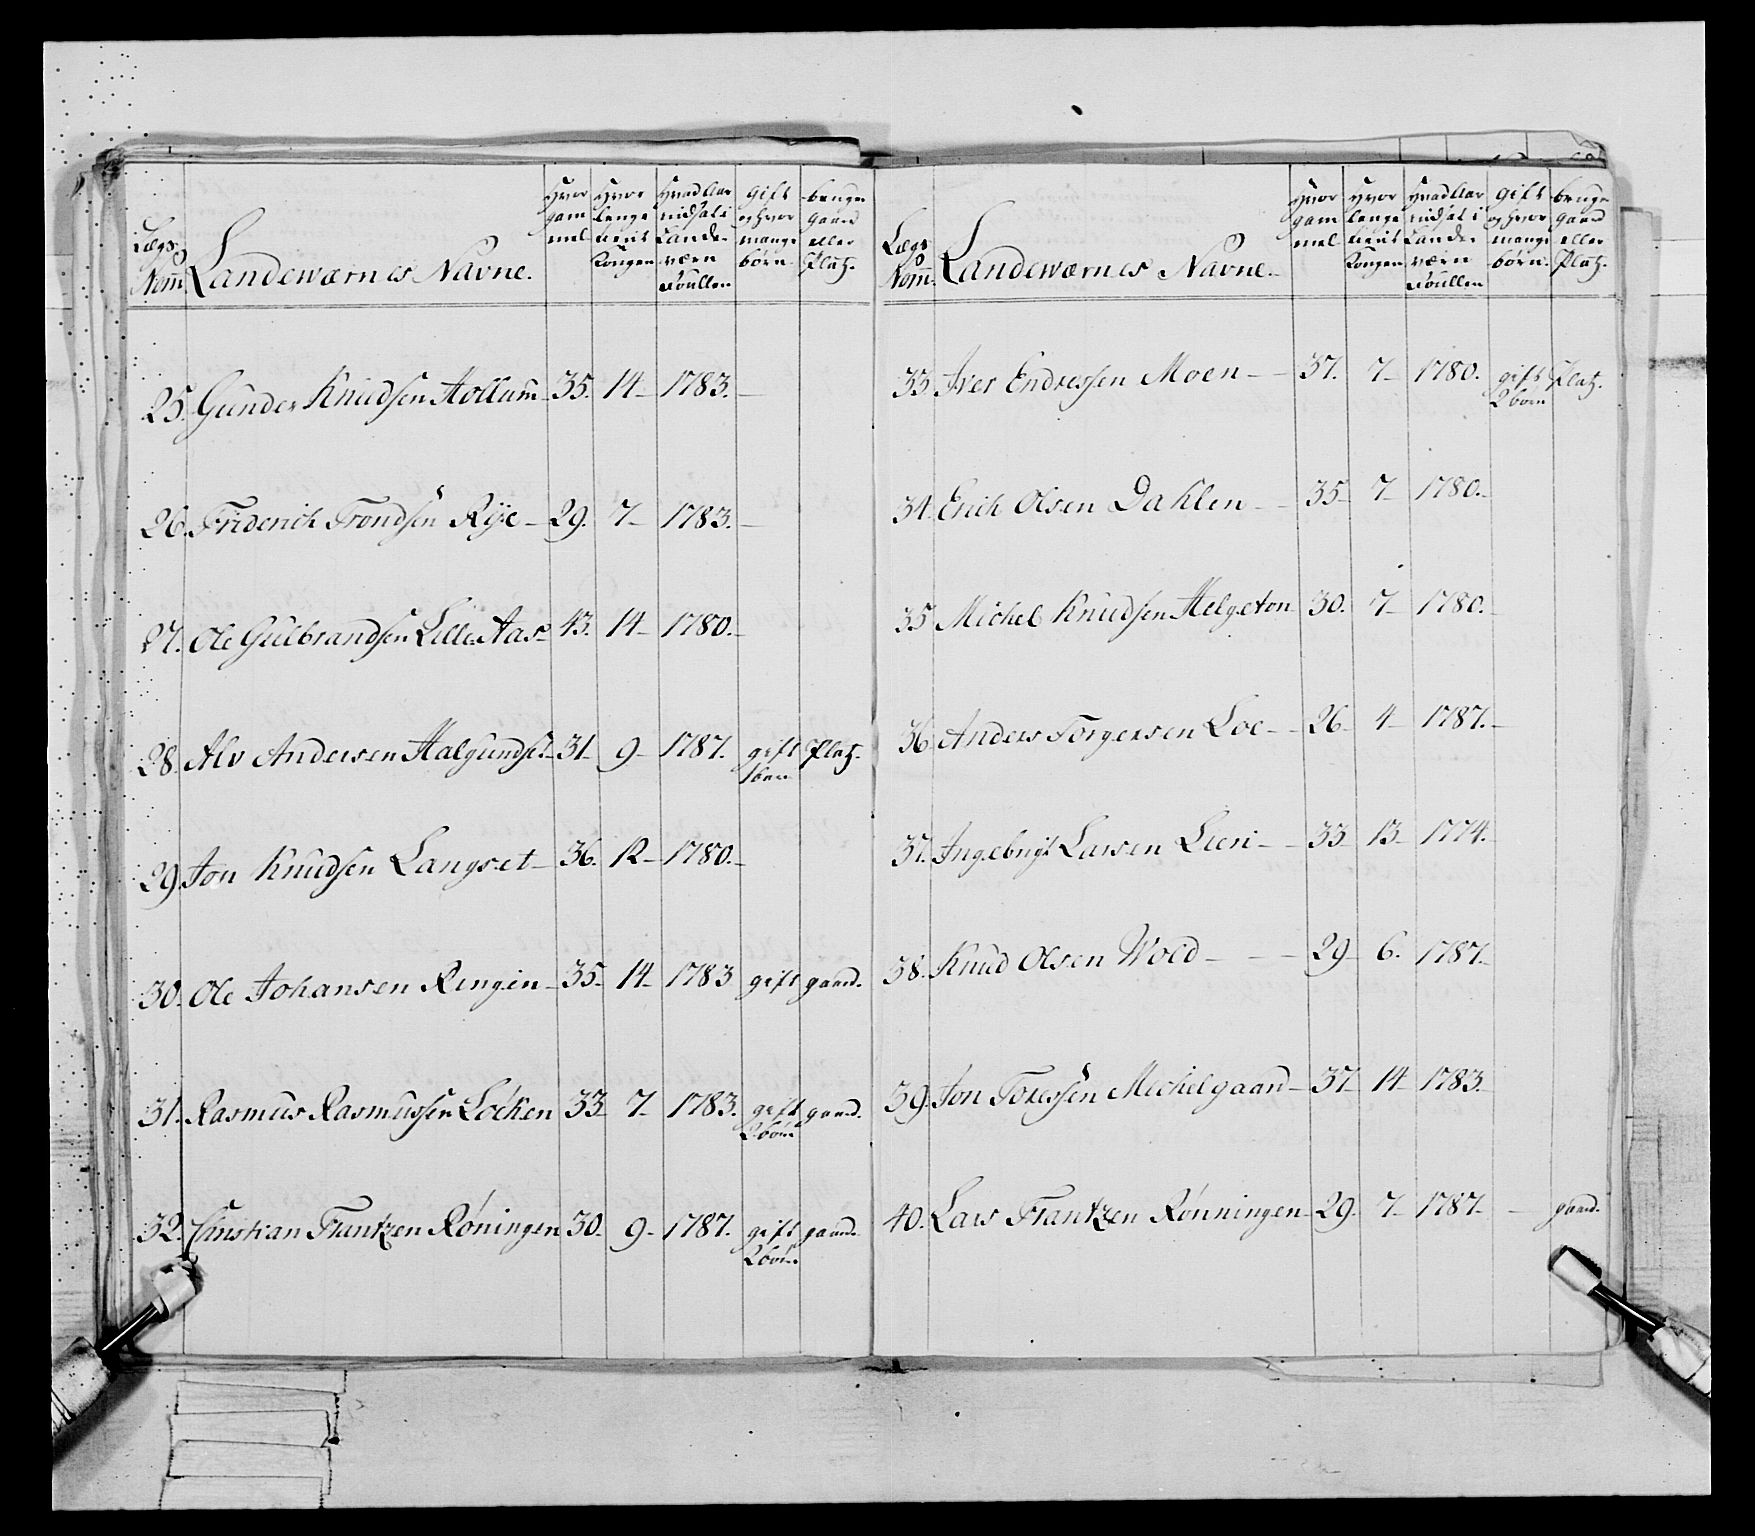 Lægs Nom̄. Landeværnes Navne. Hvor gam mel Hvor lenge tient Kongen Hvad Aar indsat i Lande- værn Roullen gift og hvor mange börn bruger gaard eller Platz.
25. Gunder Knudsen Hollum 35. 14 1783.
26. Friderich Trondsen Rije 29. 7 1783.
27. Ole Gulbrandsen Lille Aas 43. 14 1780.
28. Alv Andersen Halgunset 31 9 1787. gift Platz.
1 barn
29. Jon Knudsen Langset 36. 12 1780.
30. Ole Johansen Ringen 35. 14 1783 gift gaard.
31. Rasmus Rasmussen Löcken 33 7 1783. gift gaard.
2 börn
32. Christian Frantzen Röningen 30. 9 1787. gift gaard.
2 börn
Lægs Nom̄. Landeværnes Navne. Hvor gam mel Hvor lenge tient Kongen Hvad Aar indsat i Lande- værn Roullen gift og hvor mange börn. bruger gaard eller Platz.
33. Iver Endressen Moen 37. 7 1780. gift Platz.
2 börn
34. Erich Olsen Dahlen 35 7 1780.
35 Michel Knudsen Helgeton 30. 7 1780.
36. Anders Torgersen Loe 26 4 1787.
37. Ingebrigt Larsen Lien 33 13 1774.
38. Knud Olsen Wold 29 6. 1787.
39. Jon Toressen Mechelgaard 37 14 1783.
40. Lars Frantzen Rönningen 29. 7 1787 gaard.